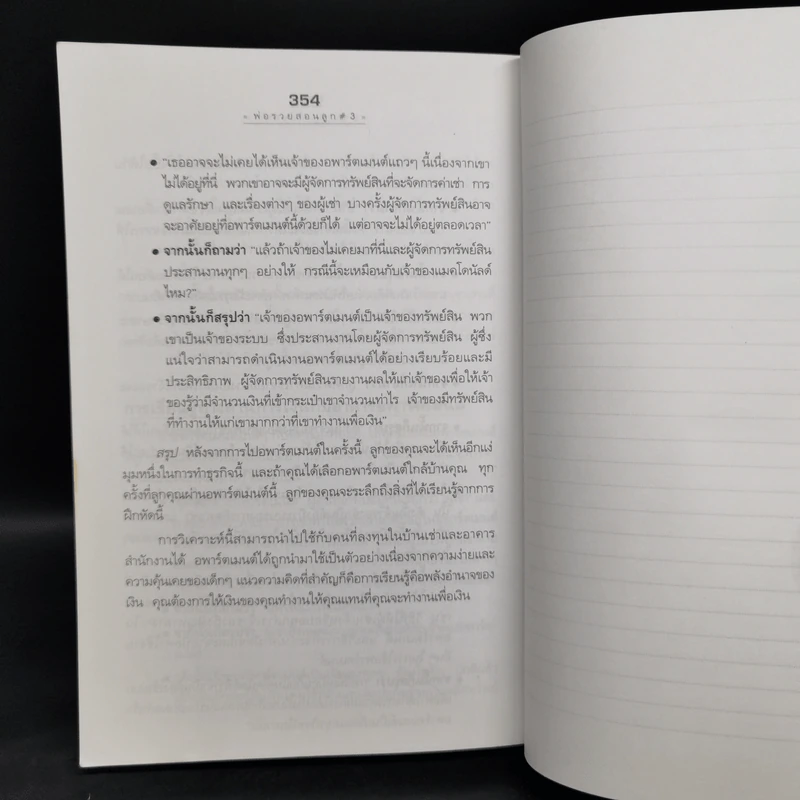 354
« พ่อรวยสอนลูก # 3 »
• "เธออาจจะไม่เคยได้เห็นเจ้าของอพาร์ตเมนต์แถวๆ นี้เนื่องจากเขา
ไม่ได้อยู่ที่นี่ พวกเขาอาจจะมีผู้จัดการทรัพย์สินที่จะจัดการค่าเช่า การ
ดูแลรักษา และเรื่องต่างๆ ของผู้เช่า บางครั้งผู้จัดการทรัพย์สินอาจ
จะอาศัยอยู่ที่อพาร์ตเมนต์นี้ด้วยก็ได้ แต่อาจจะไม่ได้อยู่ตลอดเวลา"
• จากนั้นก็ถามว่า "แล้วถ้าเจ้าของไม่เคยมาที่นี่และผู้จัดการทรัพย์สิน
ประสานงานทุกๆ อย่างให้ กรณีนี้จะเหมือนกับเจ้าของแมคโดนัลด์
ไหม?"
• จากนั้นก็สรุปว่า "เจ้าของอพาร์ตเมนต์เป็นเจ้าของทรัพย์สิน พวก
เขาเป็นเจ้าของระบบ ซึ่งประสานงานโดยผู้จัดการทรัพย์สิน ผู้ซึ่ง
แน่ใจว่าสามารถดำเนินงานอพาร์ตเมนต์ได้อย่างเรียบร้อยและมี
ประสิทธิภาพ ผู้จัดการทรัพย์สินรายงานผลให้แก่เจ้าของเพื่อให้เจ้า
ของรู้ว่ามีจำนวนเงินที่เข้ากระเป๋าเขาจำนวนเท่าไร เจ้าของมีทรัพย์สิน
ที่ทำงานให้แก่เขามากกว่าที่เขาทำงานเพื่อเงิน"
สรุป หลังจากการไปอพาร์ตเมนต์ในครั้งนี้ ลูกของคุณจะได้เห็นอีกแง่
มุมหนึ่งในการทำธุรกิจนี้ และถ้าคุณได้เลือกอพาร์ตเมนต์ใกล้บ้านคุณ ทุก
ครั้งที่ลูกคุณผ่านอพาร์ตเมนต์นี้ ลูกของคุณจะระลึกถึงสิ่งที่ได้เรียนรู้จากการ
ฝึกหัดนี้
การวิเคราะห์นี้สามารถนำไปใช้กับคนที่ลงทุนในบ้านเช่าและอาคาร
สำนักงานได้ อพาร์ตเมนต์ได้ถูกนำมาใช้เป็นตัวอย่างเนื่องจากความง่ายและ
ความคุ้นเคยของเด็กๆ แนวความคิดที่สำคัญก็คือการเรียนรู้คือพลังอำนาจของ
เงิน คุณต้องการให้เงินของคุณทำงานให้คุณแทนที่คุณจะทำงานเพื่อเงิน